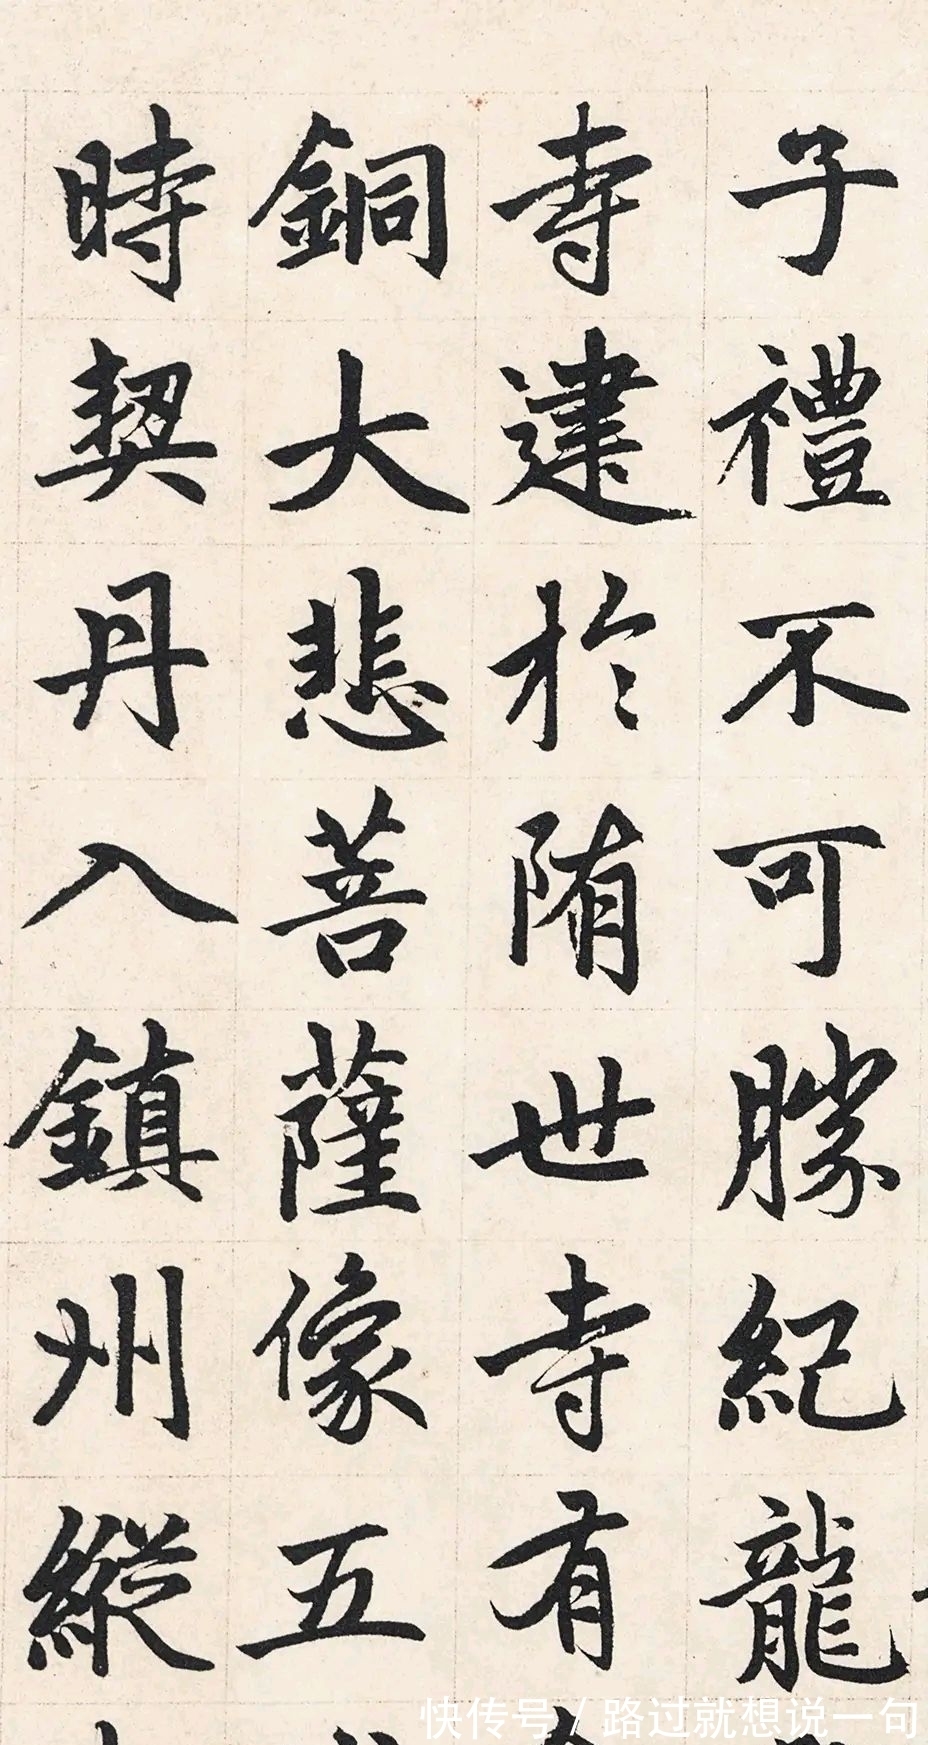 子禮不可勝紀龍
寺建於隋世寺有
銅大悲菩薩像五
時契丹入鎮州縱
快传号/路过就想说一句